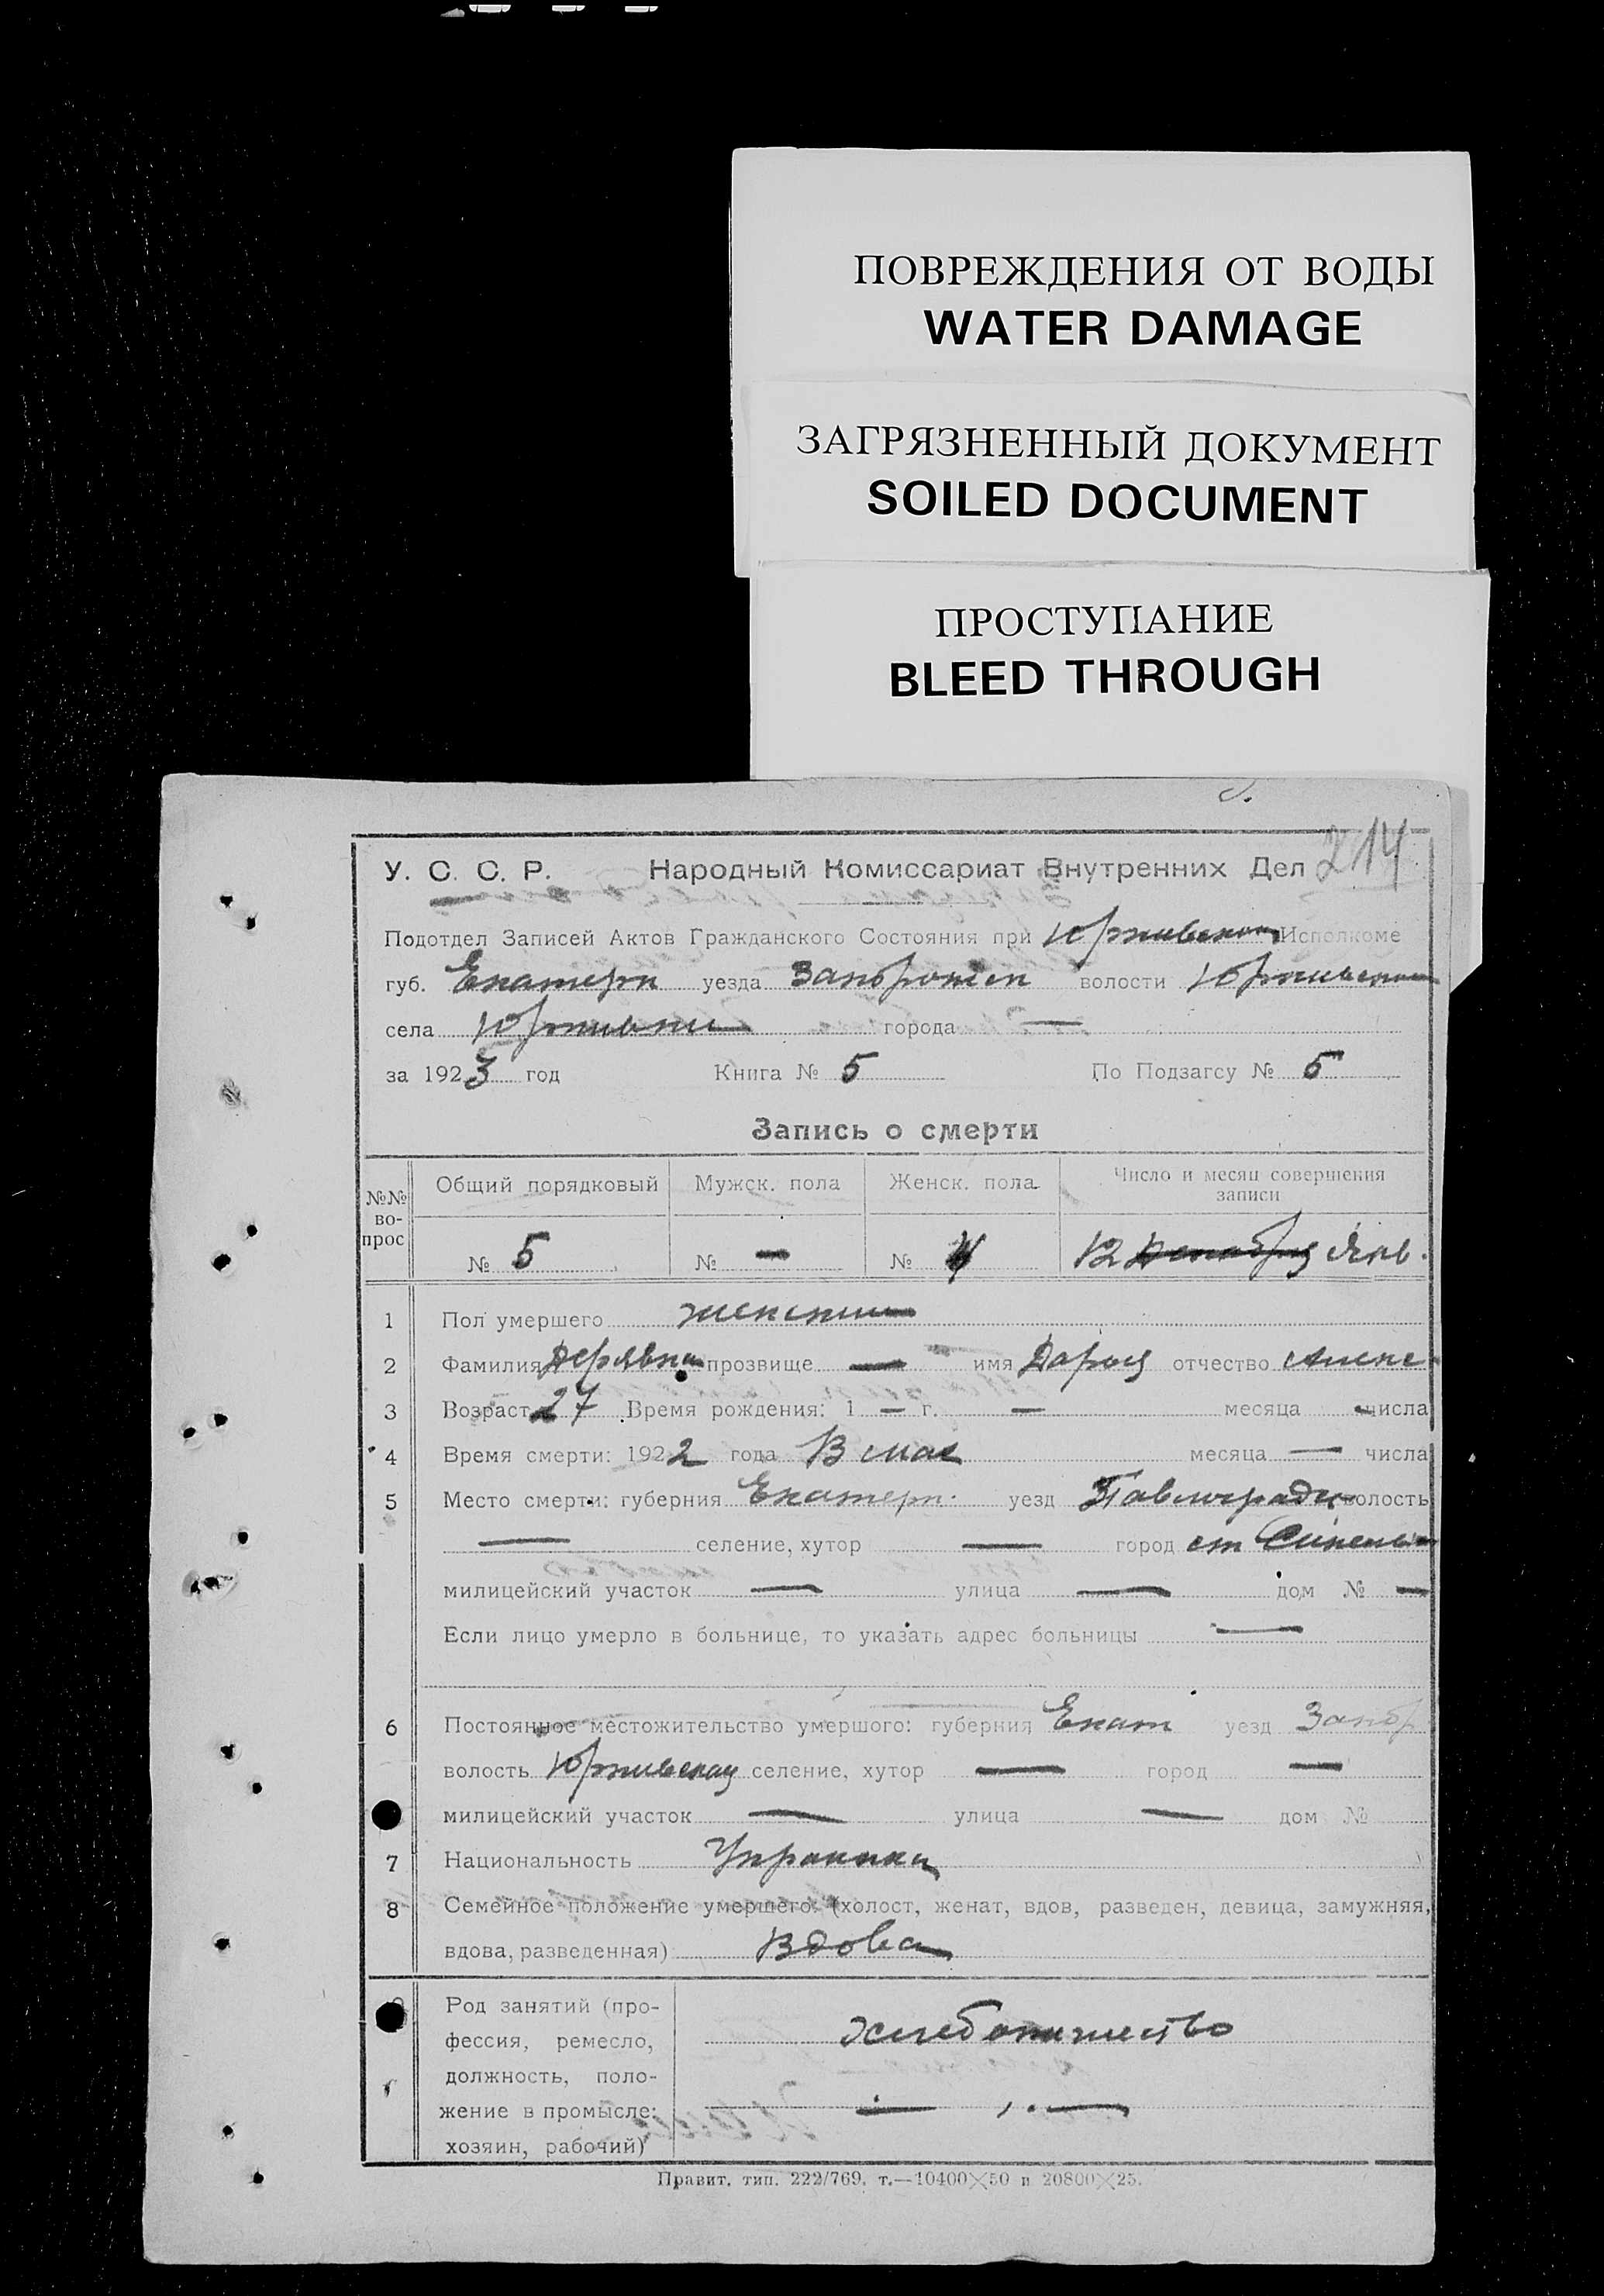 ПОВРЕЖДЕНИЯ ОТ ВОДЫ
WATER DAMAGE
ЗАГРЯЗНЕННЫЙ ДОКУМЕНТ
SOILED DOCUMENT
ПРОСТУПАНИЕ
BLEED THROUGH
214
У. С. С. Р. Народный Комиссариат Внутренних Дел
Подотдел Записей Актов Гражданского Состояния при Исполкоме
губ. Екатерн уезда Запорожск волости
села города —
за 1923 год Книга № 5 По Подзагсу № 5
Запись о смерти
№№ вопрос
Общий порядковый Мужск. пола Женск. пола Число и месяц совершения записи
№ 5 № — № 4 12 декабря Янв.
1 Пол умершего женский
2 Фамилия прозвище — имя Дарья отчество Алекс
3 Возраст 27 Время рождения: 1 — г. — месяца — числа
4 Время смерти: 1922 года В мае месяца — числа
5 Место смерти: губерния Екатерн. уезд Павлоградск волость
— селение, хутор — город ст
милицейский участок — улица — дом № —
Если лицо умерло в больнице, то указать адрес больницы —
6 Постоянное местожительство умершого: губерния Екат уезд Запор
волость селение, хутор — город —
милицейский участок — улица — дом №
7 Национальность Украинка
8 Семейное положение умершего: (холост, женат, вдов, разведен, девица, замужняя,
вдова, разведенная) Вдова
9 Род занятий (про-
фессия, ремесло, Хлебопашество
должность, поло-
жение в промысле:
хозяин, рабочий)
Правит. тип. 222/769. т.—10400×50 и 20800×25.